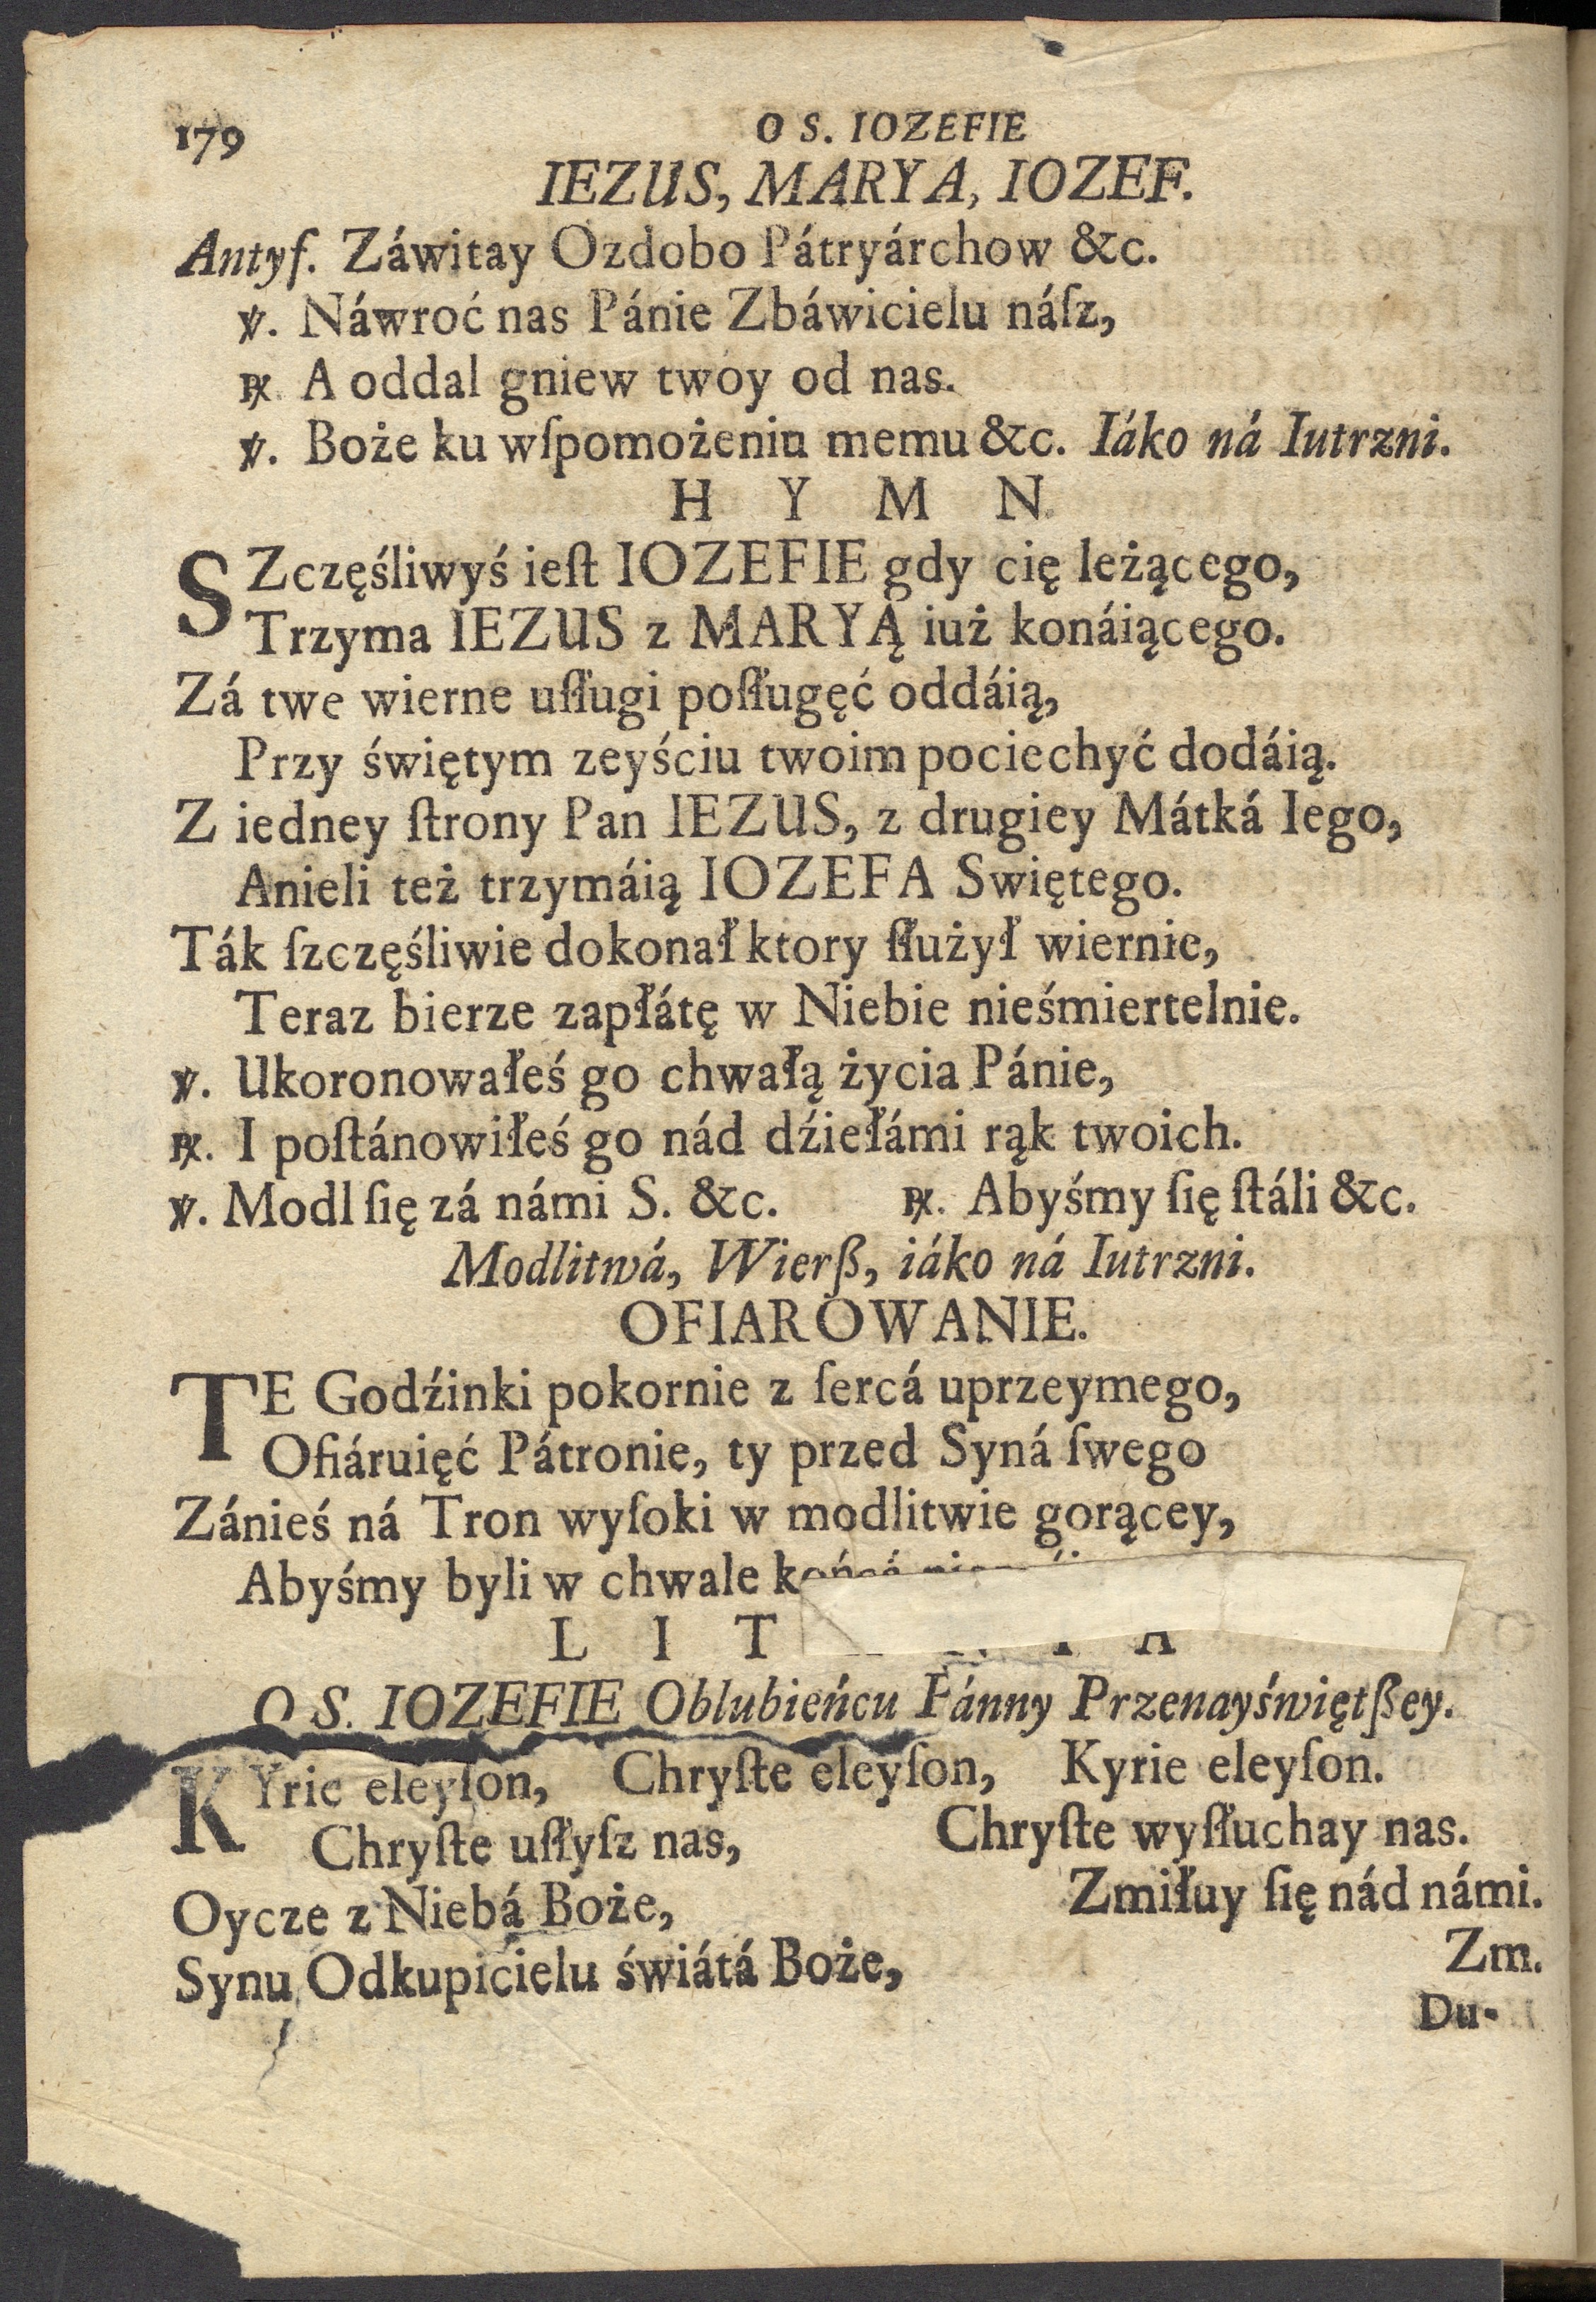 179
O S. IOZEFIE
IEZUS, MARYA, IOZEF.
Antyf. Záwitay Ozdobo Pátryárchow &c.
℣. Náwroć nas Pánie Zbáwicielu náſz,
℟. A oddal gniew twoy od nas.
℣. Boże ku wſpomożeniu memu &c. Iáko ná Iutrzni.
H Y M N.
SZczęśliwyś ieſt IOZEFIE gdy cię leżącego,
Trzyma IEZUS z MARYĄ iuż konáiącego.
Zá twe wierne uſługi poſługęć oddáią,
Przy świętym zeyściu twoim pociechyć dodáią.
Z iedney ſtrony Pan IEZUS, z drugiey Mátká Iego,
Anieli też trzymáią IOZEFA Swiętego.
Ták ſzczęśliwie dokonał ktory ſłużył wiernie,
Teraz bierze zapłátę w Niebie nieśmiertelnie.
℣. Ukoronowałeś go chwałą życia Pánie,
℟. I poſtánowiłeś go nád dźiełámi rąk twoich.
℣. Modl ſię zá námi S. &c. ℟. Abyśmy ſię ſtáli &c.
Modlitwá, Wierß, iáko ná Iutrzni.
OFIAROWANIE.
TE Godźinki pokornie z ſercá uprzeymego,
Ofiáruięć Pátronie, ty przed Syná ſwego
Zánieś ná Tron wyſoki w modlitwie gorącey,
Abyśmy byli w chwale końcá
L I T
O S. IOZEFIE Oblubieńcu Pánny Przenayświętßey.
KYrie eleyſon, Chryſte eleyſon, Kyrie eleyſon.
Chryſte uſłyſz nas, Chryſte wyſłuchay nas.
Oycze z Niebá Boże, Zmiłuy ſię nád námi.
Synu Odkupicielu świátá Boże, Zm.
Du-